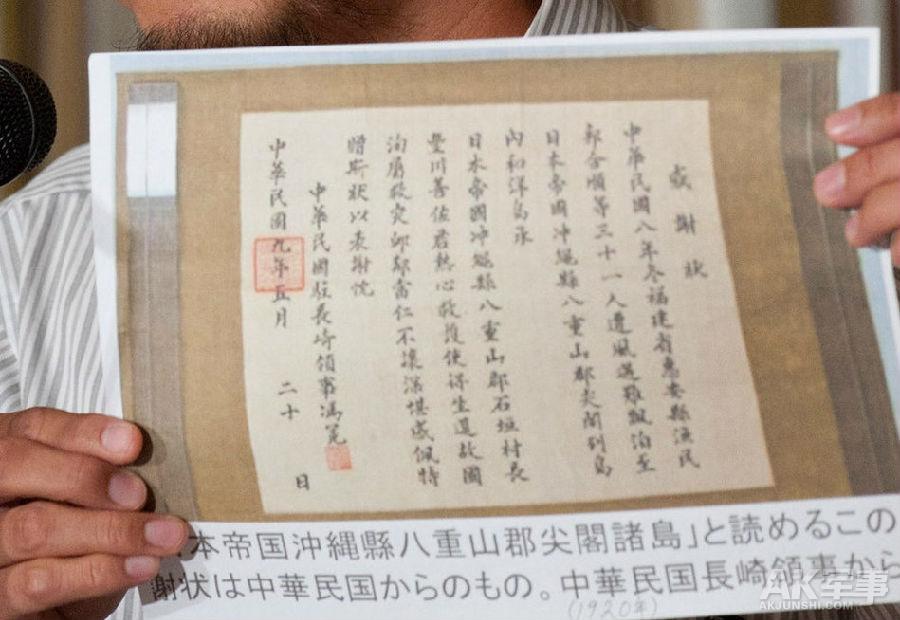 感謝狀
中華民國八年冬福建省惠安縣漁民
郭合順等三十一人遭風遇難飄泊至
日本帝國沖繩縣八重山郡尖閣列島
內和洋島承
日本帝國沖繩縣八重山郡石垣村長
豐川善佐君熱心救護使得生還故國
洵屬救灾卹鄰當仁不讓深堪感佩特
贈斯狀以表謝忱
中華民國駐長崎領事馮冕
中華民國九年五月二十日
本帝国沖縄縣八重山郡尖閣諸島」と読めるこの
謝状は中華民国からのもの。中華民国長崎領事から
(1920年)
AK军事
AKJUNSHI.COM